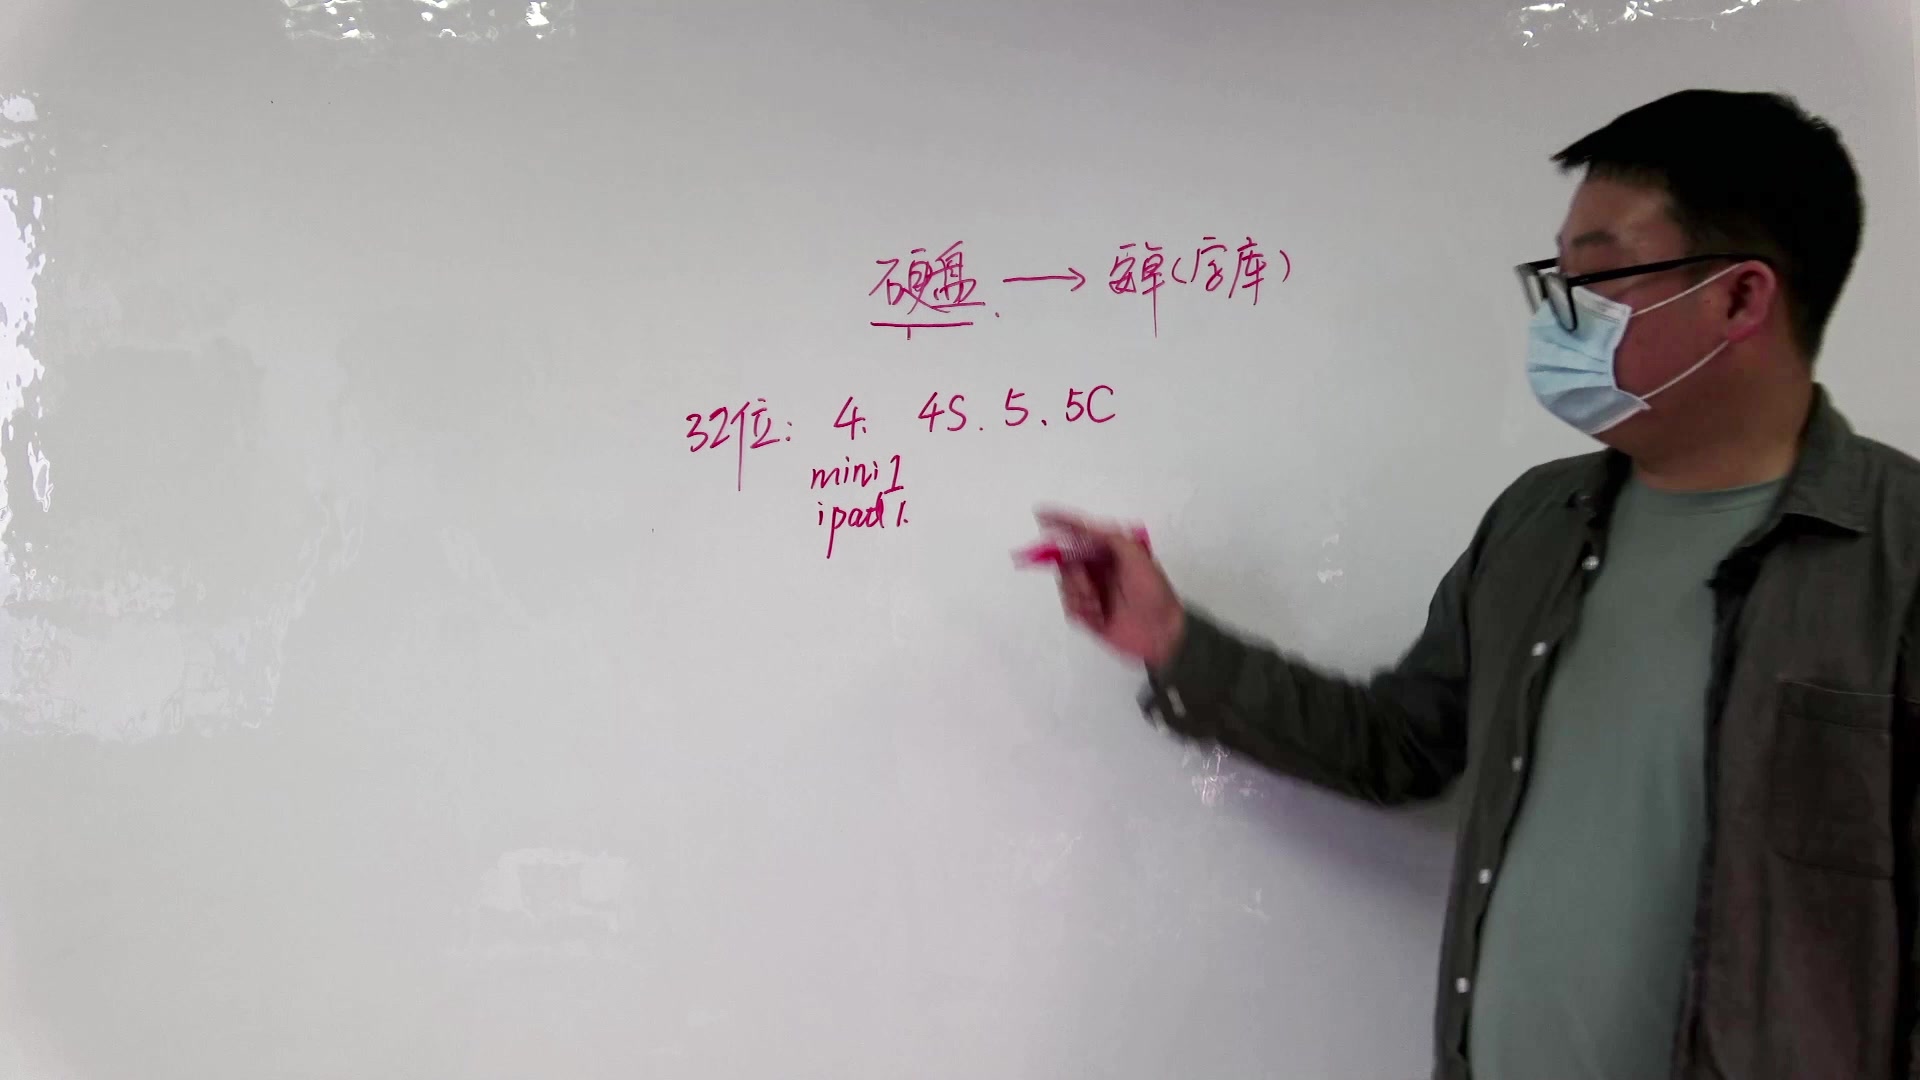 硬盘. → 安卓(字库)
32位: 4. 4S. 5. 5C
mini1
ipad1.